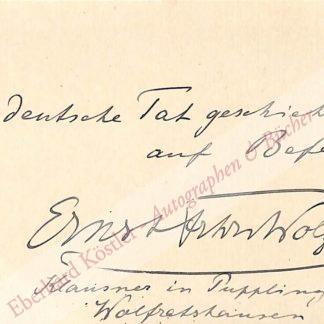 deutsche Tat geschieh
auf Befe
Ernst Frhr Wolz
Klausner in Puppling
Wolfratshausen
Eberhard Köstler Autographen & Bücher